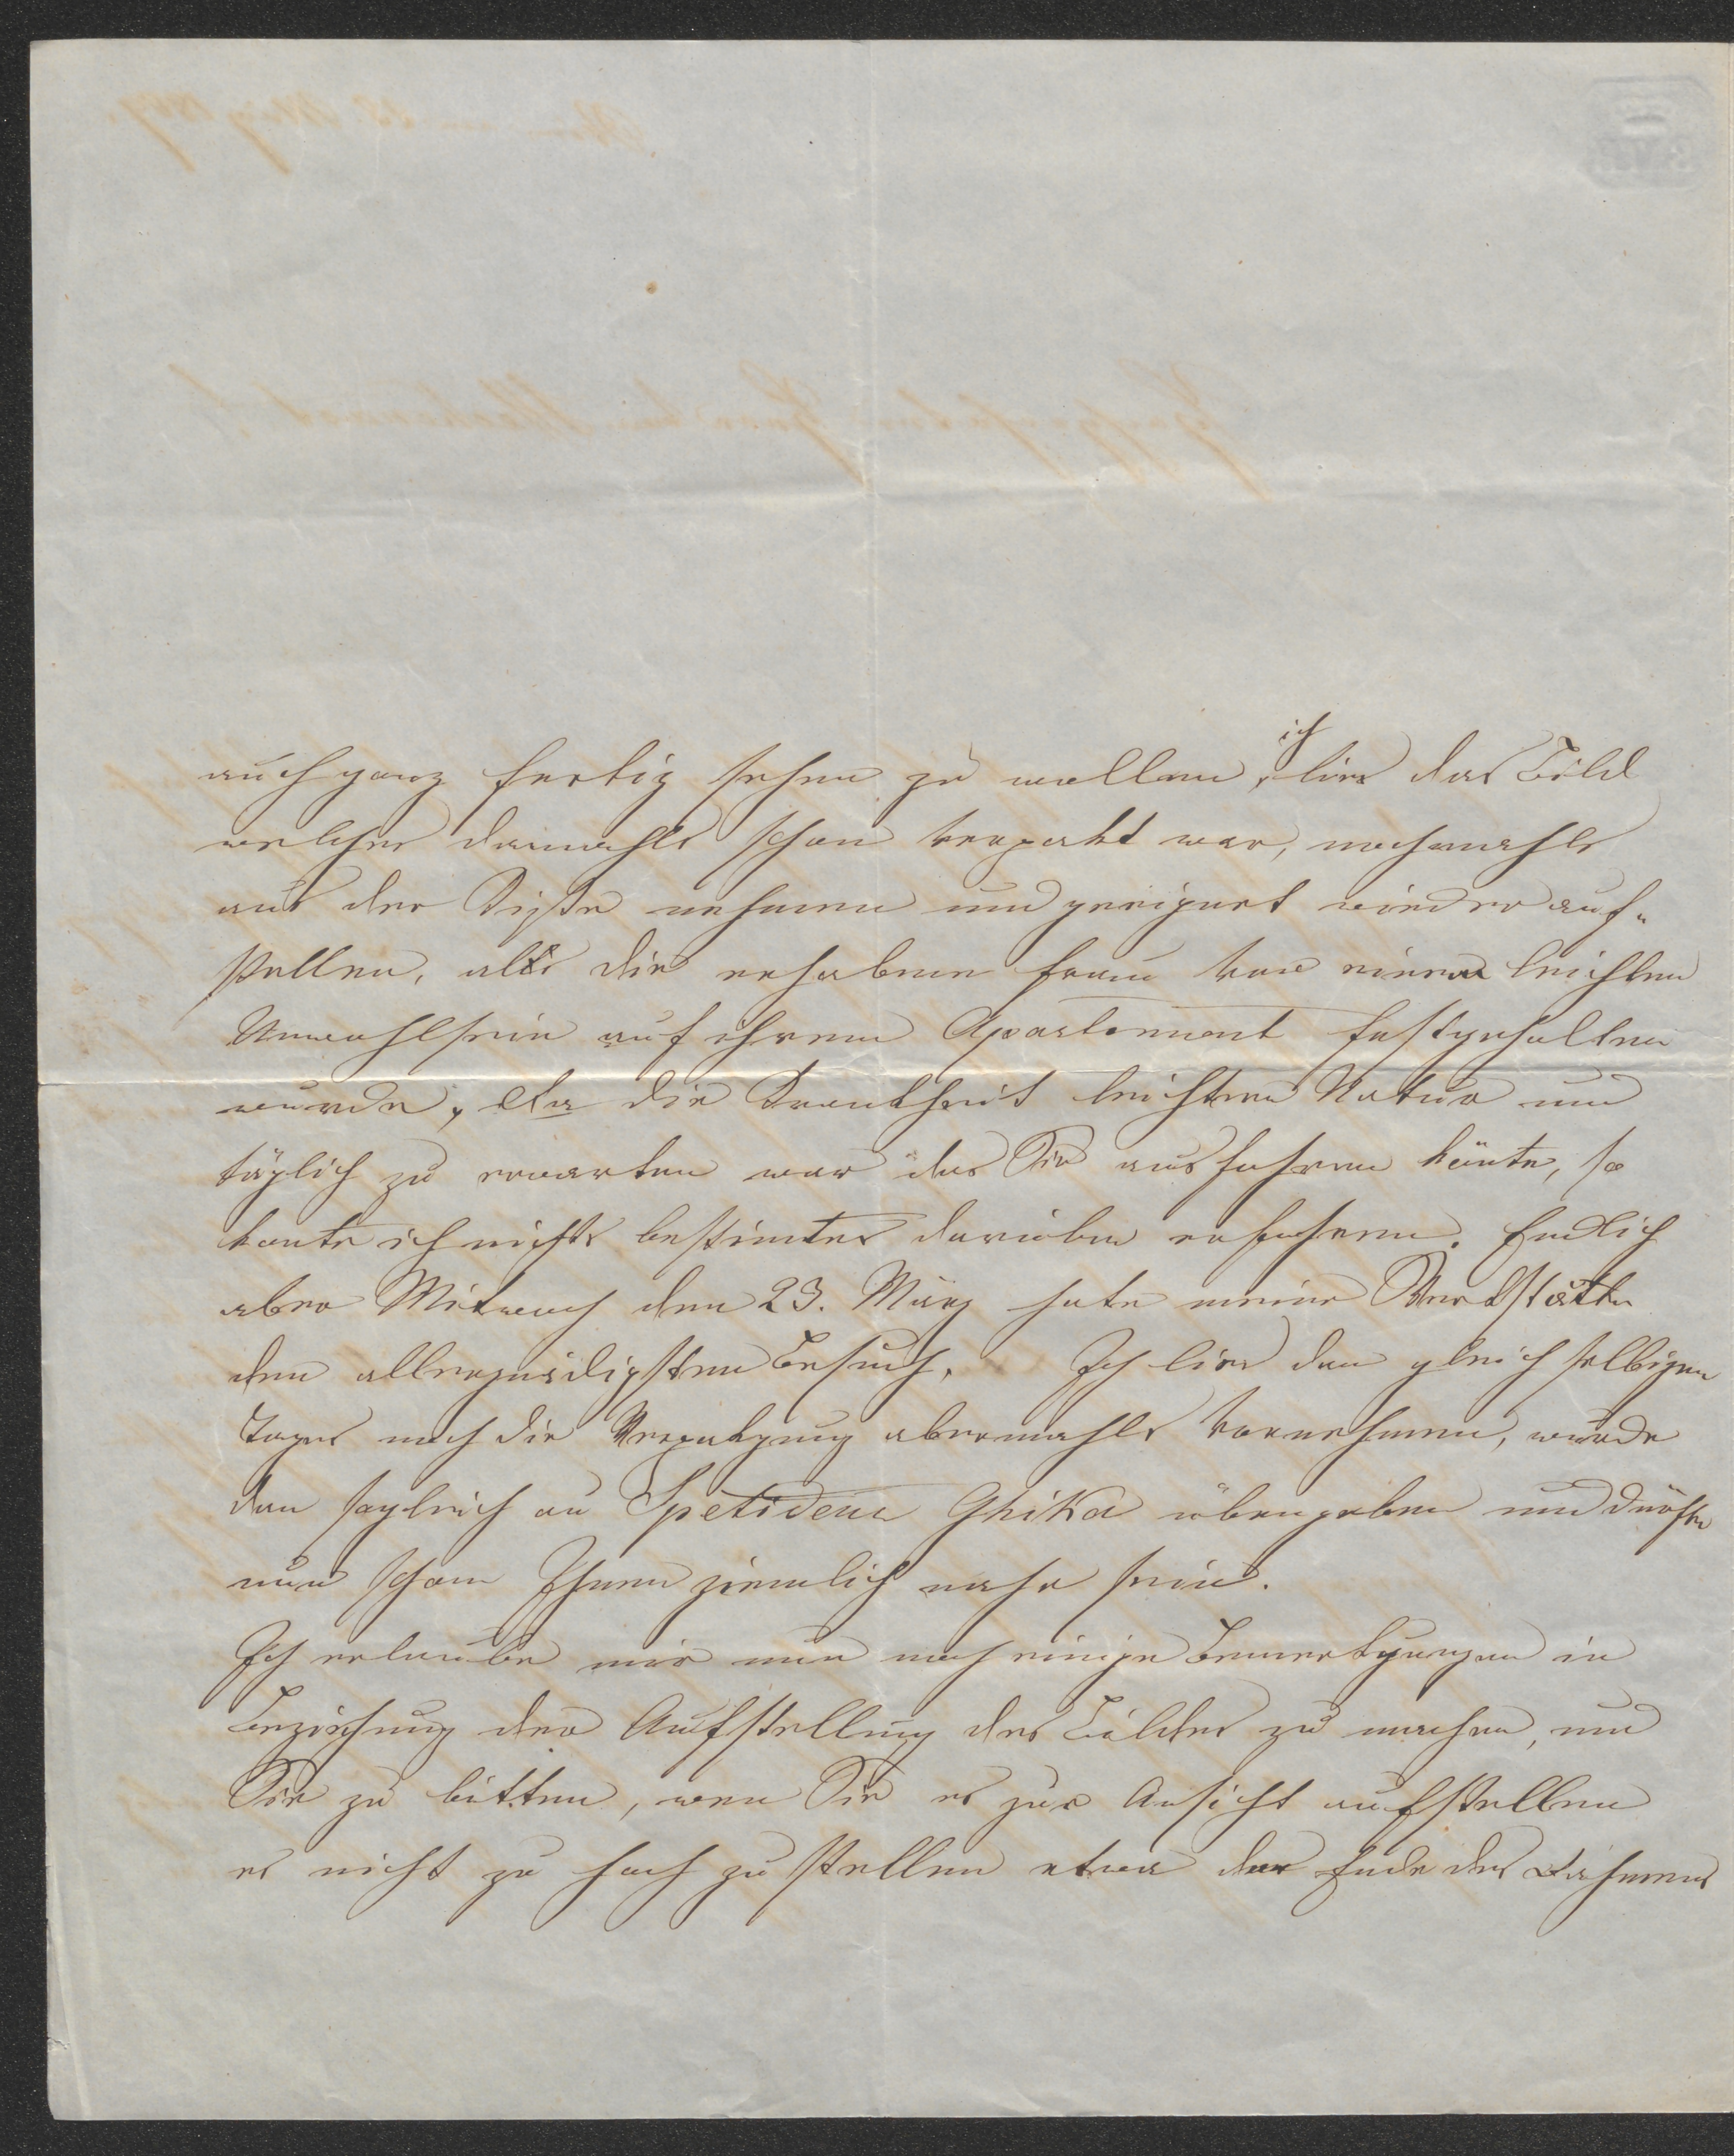 auch ganz fertig sehen zu wollen, ich lies das Bild
welches damahls schon verpakt war, nochmahls
aus der Kiste nehmen und geeignet wieder auf-
stellen, als die erhabene Frau von einem leichten
Unwohlsein auf ihrem Apartement festgehalten
wurde, da die Krankheit leichter Natur und
täglich zu erwarten war das Sie ausfahren könte, so
konte ich nichts bestimtes darüber erfahren. Endlich
aber Mitwoch den 23. März hate meine Werkstätte
den allergnädigsten Besuch. Ich lies dan gleich selbigen
Tages noch die Verpakgung abermahls vornehmen, wurde
dan sogleich an Spetideur Ghika übergeben und dürfte
nun schon Ihnen ziemlich nahe sein.
Ich erlaube mir nun noch einige Bemerkgungen in
Beziehung der Aufstellung des Bildes zu machen, und
Sie zu bitten, wen Sie es zur Ansicht aufstellen
es nicht zu hoch zu stellen etwa das Ende des Rahmens